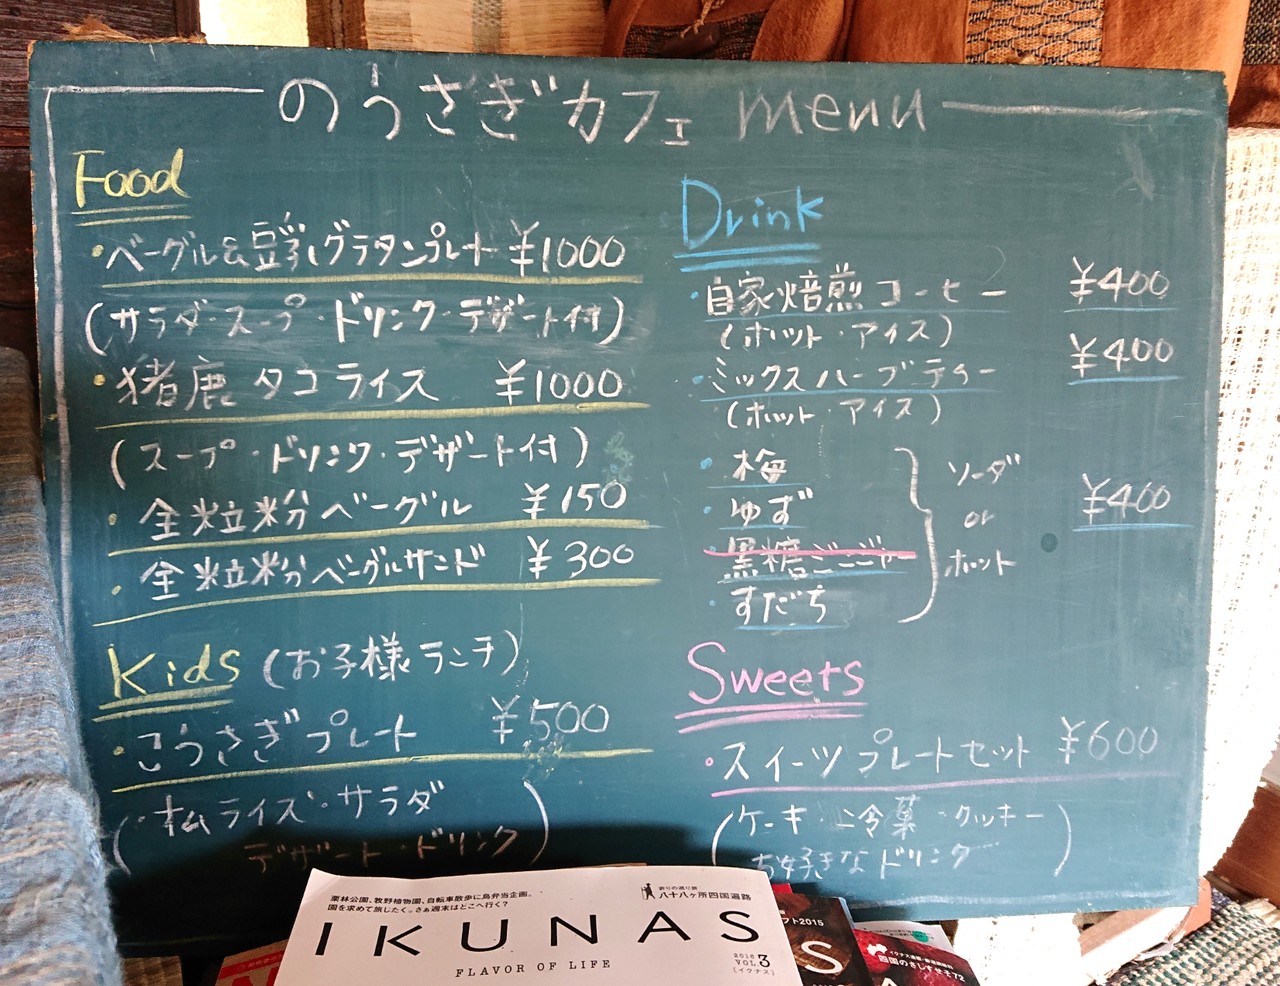 のうさぎカフェ menu
Food
・ベーグル&豆乳グラタンプレート ¥1000
(サラダ・スープ・ドリンク・デザート付)
・猪鹿タコライス ¥1000
(スープ・ドリンク・デザート付)
・全粒粉ベーグル ¥150
・全粒粉ベーグルサンド ¥300
Kids (お子様ランチ)
・こうさぎプレート ¥500
(・オムライス・サラダ
デザート・ドリンク)
Drink
・自家焙煎コーヒー ¥400
(ホット・アイス)
・ミックスハーブティー ¥400
(ホット・アイス)
・梅
・ゆず
・黒糖ジンジャー
・すだち
ソーダ
or
ホット
¥400
Sweets
・スイーツプレートセット ¥600
(ケーキ・冷菓・クッキー
お好きなドリンク)
栗林公園、牧野植物園、自転車散歩に島弁当企画。
園を求めて旅したく。さぁ週末はどこへ行く?
八十八ヶ所四国遍路
IKUNAS
FLAVOR OF LIFE
2016
VOL.3
[イクナス]
フト2015
S
四国のさしすせそ72